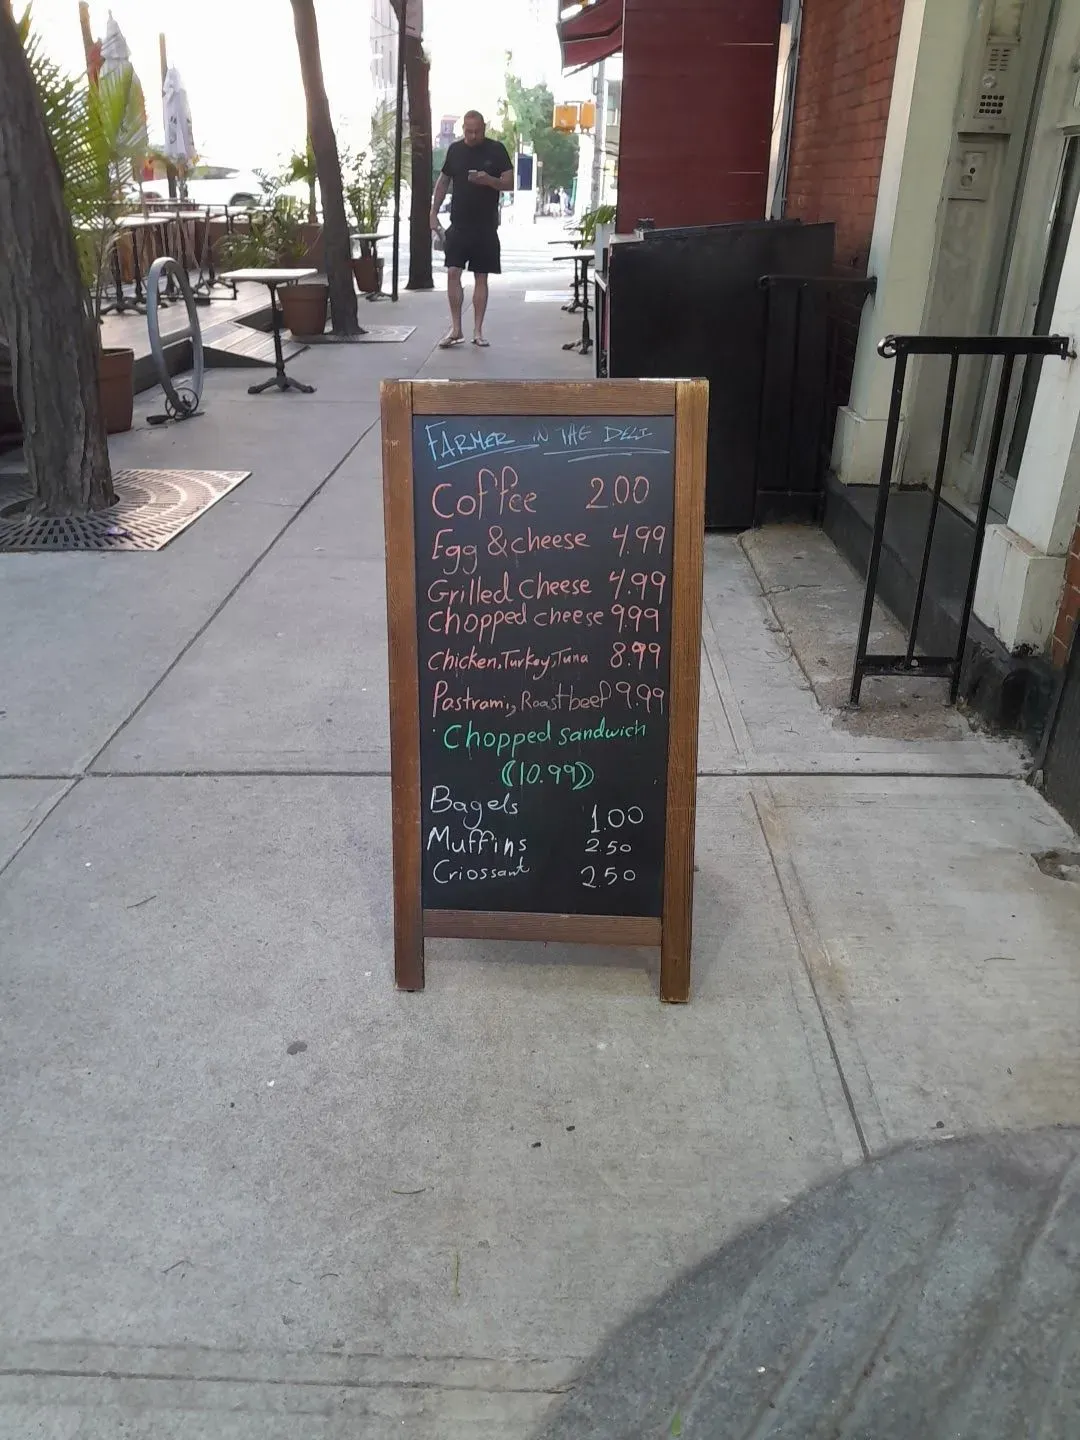 FARMER IN THE DELI
Coffee 2.00
Egg & cheese 4.99
Grilled cheese 4.99
Chopped cheese 9.99
Chicken, Turkey, Tuna 8.99
Pastrami, Roast beef 9.99
Chopped sandwich
((10.99))
Bagels 1.00
Muffins 2.50
Criossant 2.50